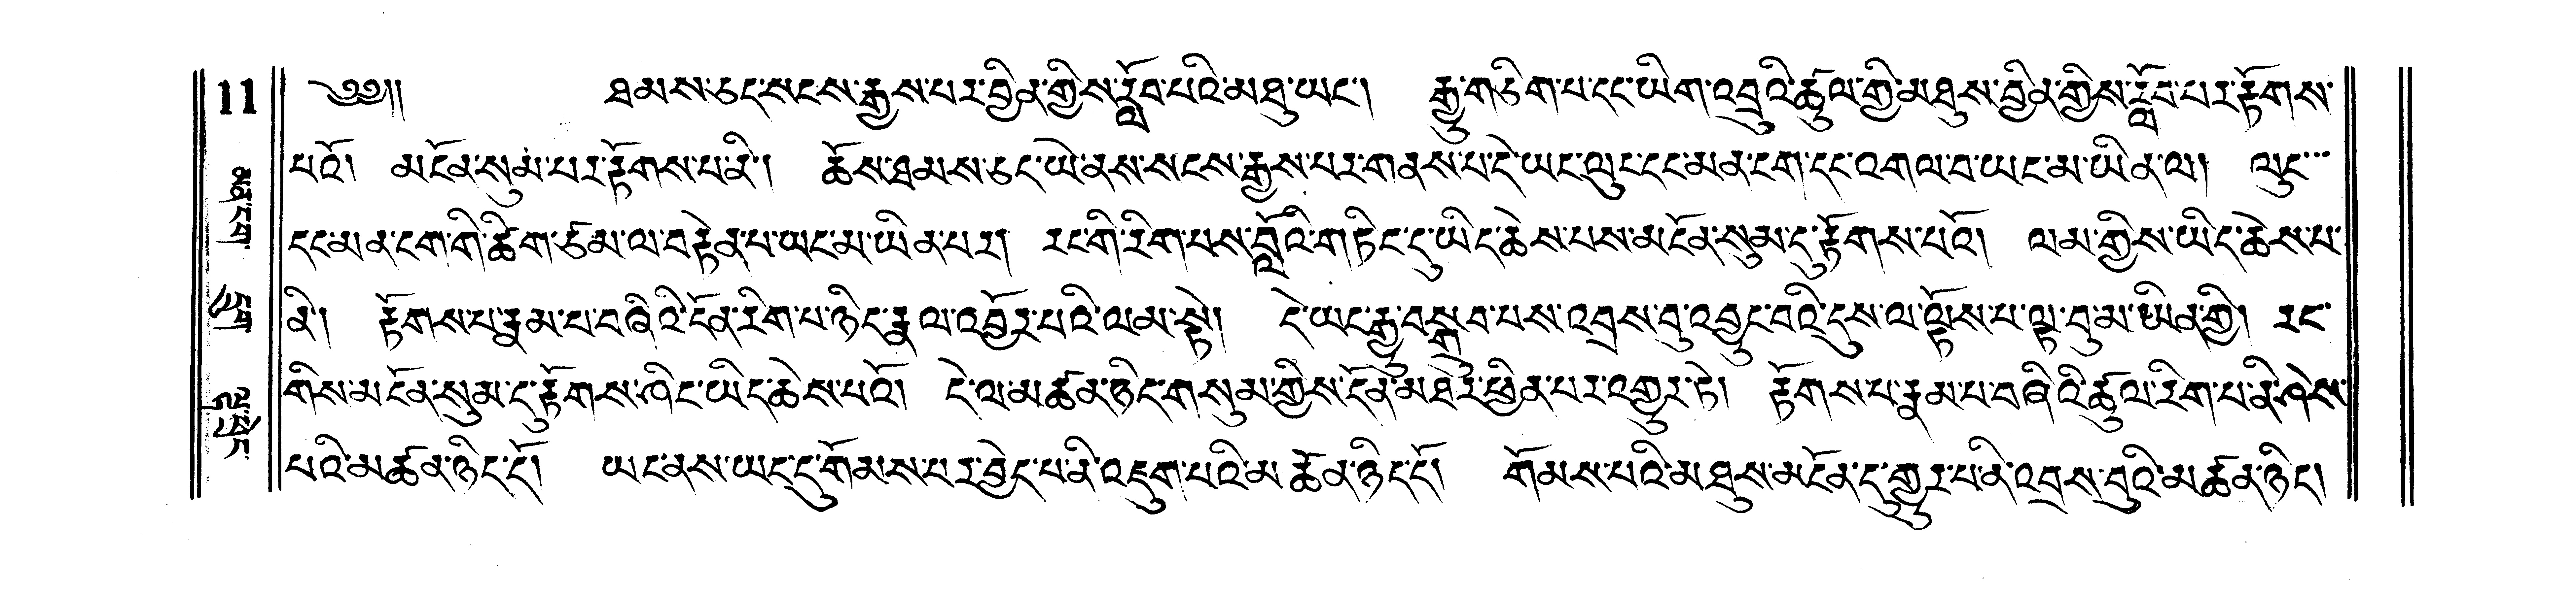 11
༄༅། །ཐམས་ཅད་སངས་རྒྱས་པར་བྱིན་གྱིས་རློབ་པའི་མཐུ་ཡང་། རྒྱུ་གཅིག་པ་དང་ཡིག་འབྲུའི་ཚུལ་གྱི་མཐུས་བྱིན་གྱིས་རློབ་པར་རྟོགས་
པའོ། མངོན་སུམ་པར་རྟོགས་པ་ནི། ཆོས་ཐམས་ཅད་ཡེ་ནས་སངས་རྒྱས་པར་གནས་པ་དེ་ཡང་ལུང་དང་མན་ངག་དང་འགལ་བ་ཡང་མ་ཡིན་ལ། ལུང་
དང་མན་ངག་གི་ཚིག་ཙམ་ལ་བརྟེན་པ་ཡང་མ་ཡིན་པར། རང་གི་རིག་པས་བློའི་གཏིང་དུ་ཡིད་ཆེས་པས་མངོན་སུམ་དུ་རྟོགས་པའོ། ལམ་གྱིས་ཡིད་ཆེས་པ་
ནི། རྟོགས་པ་རྣམ་པ་བཞིའི་དོན་རིག་པ་ཉིད་རྣལ་འབྱོར་པའི་ལམ་སྟེ། དེ་ཡང་རྒྱུ་བསྒྲུབ་པས་འབྲས་བུ་འབྱུང་བའི་དུས་ལ་ལྟོས་པ་ལྟ་བུ་མ་ཡིན་གྱི། རང་
གིས་མངོན་སུམ་དུ་རྟོགས་ཤིང་ཡིད་ཆེས་པའོ། དེ་ལ་མཚན་ཉིད་གསུམ་གྱིས་དོན་མཐར་ཕྱིན་པར་འགྱུར་ཏེ། རྟོགས་པ་རྣམ་པ་བཞིའི་ཚུལ་རིག་པ་ནི་ཤེས་
པའི་མཚན་ཉིད་དོ། ཡང་ནས་ཡང་དུ་གོམས་པར་བྱེད་པ་ནི་འཇུག་པའི་མཚན་ཉིད་དོ། གོམས་པའི་མཐུས་མངོན་དུ་གྱུར་པ་ནི་འབྲས་བུའི་མཚན་ཉིད།